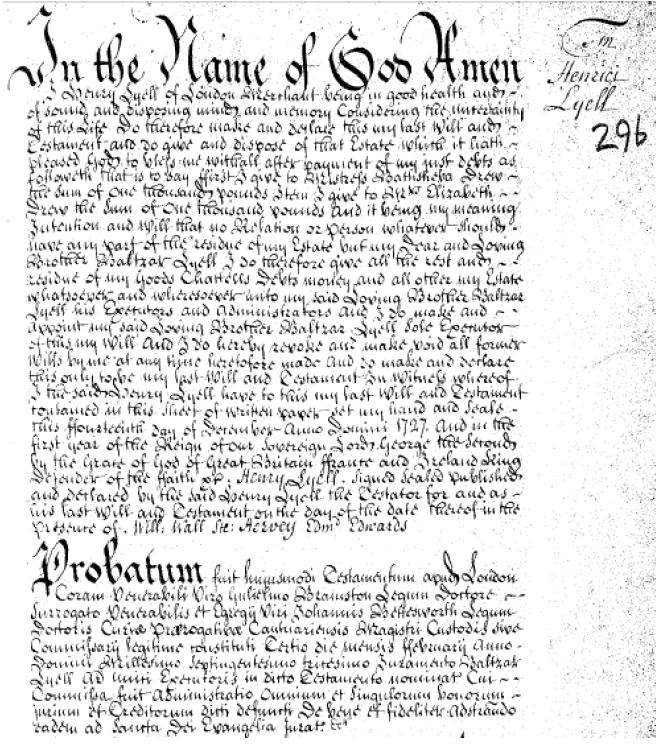 In the Name of God Amen
I Henry Lyell of London Merchant being in good health and
of sound and disposing mind and memory Considering the uncertainty
of this Life Do therefore make and declare this my last Will and
Testament and do give and dispose of that Estate which it hath
pleased God to bless me withall after payment of my just debts as
followeth that is to say ffirst I give to Mistress Bathsheba Drew
the sum of One thousand pounds Item I give to Mrs Elizabeth
Drew the sum of One thousand pounds And it being my meaning
Intention and Will that no Relation or person whatever should
have any part of the residue of my Estate but my Dear and Loving
Brother Baltzar Lyell I do therefore give all the rest and
residue of my Goods Chattells Debts money and all other my Estate
whatsoever and wheresoever unto my said Loving Brother Baltzar
Lyell his Executors and Administrators And I do make and
appoint my said Loving Brother Baltzar Lyell Sole Executor
of this my Will And I do hereby revoke and make void all former
Wills by me at any time heretofore made And do make and declare
this only to be my last Will and Testament In Witness whereof
I the said Henry Lyell have to this my last Will and Testament
contained in this sheet of written paper set my hand and Seale
this ffourteenth day of December Anno Domini 1727. And in the
first year of the Reign of our Sovereign Lord George the Second
by the Grace of God of Great Britain ffrance and Ireland King
Defender of the ffaith &c: Henry Lyell. Signed Sealed published
and declared by the said Henry Lyell the Testator for and as
his last Will and Testament on the day of the date thereof in the
presence of. Will: Wall Ste: Hervey Edmd Edwards
Probatum fuit humusmodi Testamentum apud London
Coram Venerabili Viro Gulielmo Bramston Legum Doctore
Surrogato Venerabilis et Egregij Viri Johannis Bettesworth Legum
Doctoris Curiæ Prærogativæ Cantuariensis Magistri Custodis sive
Commissarij legitime constituti Tertio die mensis ffebruarij Anno
Domini Millesimo Septingentesimo tricesimo Juramento Baltzar
Lyell Ad uniti Executoris in dicto Testamento nominat Cui
Commissa fuit Administratio Omnium et Singulorum bonorum
jurium et Creditorum dicti defuncti De bene et fideliter Adstrando
eadem ad Sancta Dei Evangelia Jurat: Exr
Tm
Henrici
Lyell
296